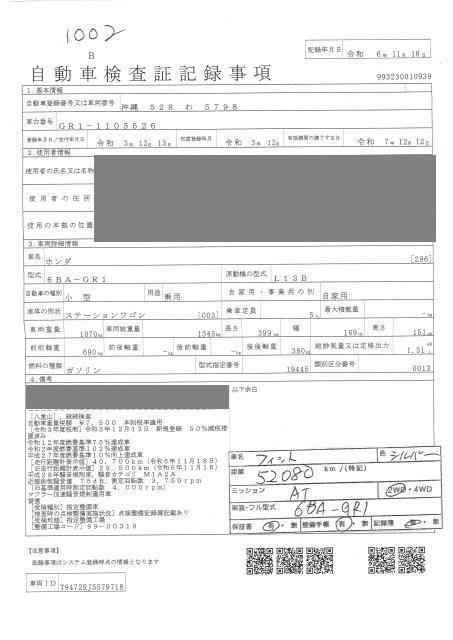 1002
B
記録年月日 令和 6年11月18日
自動車検査証記録事項 993230010939
1.基本情報
自動車登録番号又は車両番号 沖縄 528 わ 5798
車台番号 GR1-1105526
登録年月日/交付年月日 令和 3年12月13日 初度登録年月 令和 3年12月 有効期間の満了する日 令和 7年12月12日
2.使用者情報
使用者の氏名又は名称
使用者の住所
使用の本拠の位置
3.車両詳細情報
車名 ホンダ [296]
型式 6BA-GR1 原動機の型式 L13B
自動車の種別 小型 用途 乗用 自家用・事業用の別 自家用
車体の形状 ステーションワゴン [003] 乗車定員 5人 最大積載量 -kg
車両重量 1070kg 車両総重量 1345kg 長さ 399cm 幅 169cm 高さ 151cm
前前軸重 690kg 前後軸重 -kg 後前軸重 -kg 後後軸重 380kg 総排気量又は定格出力 1.31
燃料の種類 ガソリン 型式指定番号 19445 類別区分番号 0013
4.備考
以下余白
[八重山],継続検査
自動車重量税額 ¥7,500 本則税率適用
[令和3年度税制]令和3年12月13日 新規登録 50%減税措
置済み
令和12年度燃費基準75%達成車
令和2年度燃費基準102%達成車
平成27年度燃費基準10%向上達成車
[走行距離計表示値]40,700km(令和6年11月18日)
[旧走行距離計表示値]29,500km(令和5年11月1日)
平成28年騒音規制車,騒音カテゴリ M1A2A
近接排気騒音値 75dB,測定回転数 3,750rpm
[旧基準適用時測定回転数 4,000rpm]
マフラー加速騒音規制適用車
[受検種別]指定整備車
[検査時の点検整備実施状況]点検整備記録簿記載あり
[受検形態]指定整備工場
[整備工場コード]99-00319
車名 フィット 色 シルバー
距離 52080 km /(特記)
ミッション AT 2WD・4WD
型式・フル型式 6BA-GR1
保証書 有・無 整備手帳 有・無 記録簿 有・無
【注意事項】
記載事項はシステム登録時点の情報となります
車両ID T9472RJ5579718